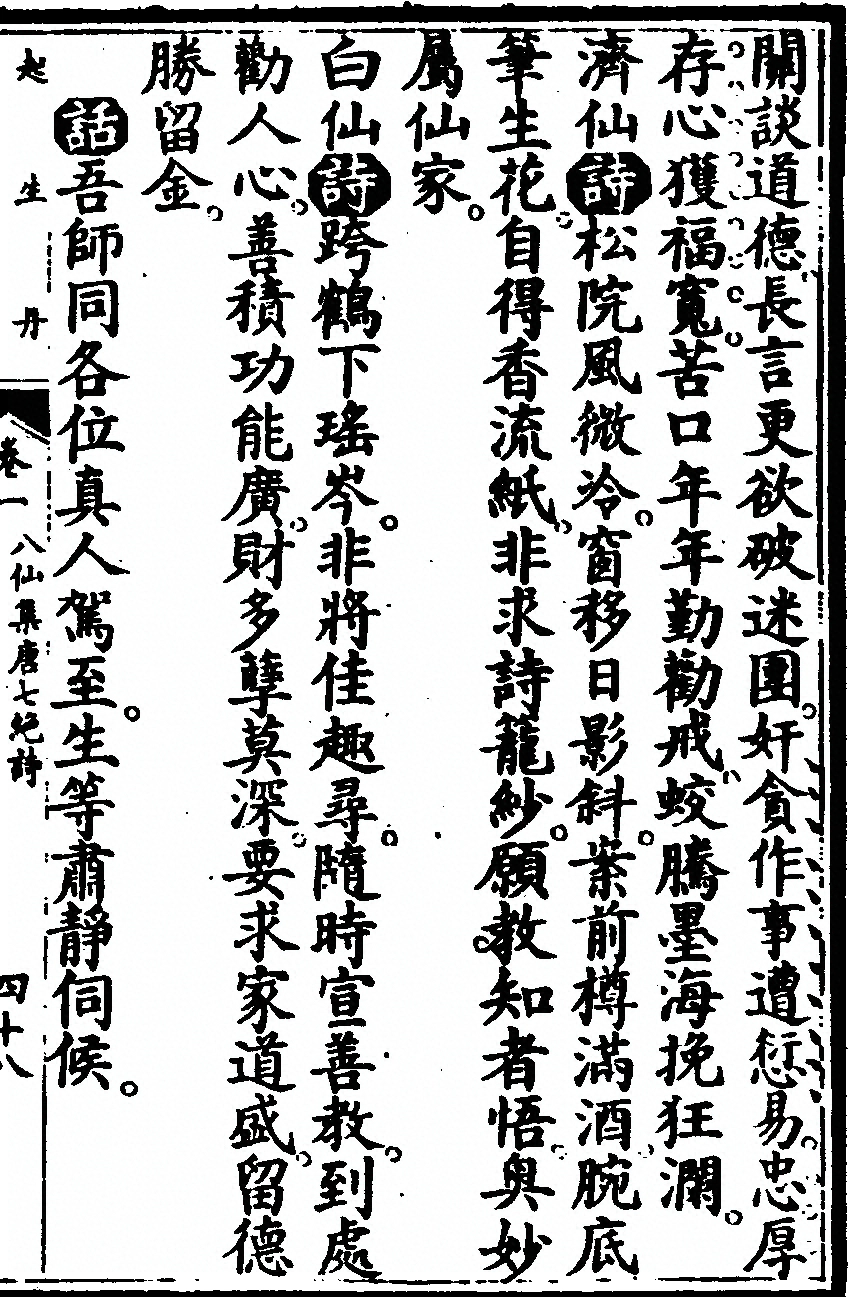 關談道德長言更欲破迷團。奸貪作事遭愆易。忠厚
存心獲福寬。苦口年年勤勸戒。蛟騰墨海挽狂瀾。
濟仙詩松院風微冷。窗移日影斜。案前樽滿酒。腕底
筆生花。自得香流紙。非求詩籠紗。願教知者悟。奧妙
屬仙家。
白仙詩跨鶴下瑤岑。非將佳趣尋。隨時宣善教。到處
勸人心。善積功能廣。財多孽莫深。要求家道盛。留德
勝留金。
話吾師同各位真人駕至。生等肅靜伺候。
起生丹
卷一 八仙集唐七絕詩 四十八